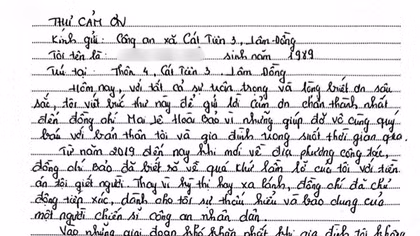 THƯ CẢM ƠN
Kính gửi: Công an xã Cát Tiên 3, Lâm Đồng
Tôi tên là: sinh năm 1989
Trú tại: Thôn 4, Cát Tiên 3, Lâm Đồng
Hôm nay, với tất cả sự trân trọng và lòng biết ơn sâu
sắc, tôi viết bức thư này để gửi lời cảm ơn chân thành nhất
đến đồng chí Mai Lê Hoài Bảo vì những giúp đỡ vô cùng quý
báu với bản thân tôi và gia đình trong suốt thời gian qua.
Từ năm 2019 đến nay khi mới về địa phương công tác,
đồng chí Bảo đã biết rõ về quá khứ lầm lỡ của tôi với tiền
án tội giết người. Thay vì kỳ thị hay xa lánh, đồng chí đã chủ
động tiếp xúc, dành cho tôi sự thấu hiểu và bao dung của
một người chiến sĩ công an nhân dân.
Vào những giai đoạn khó khăn nhất khi gia đình tôi không